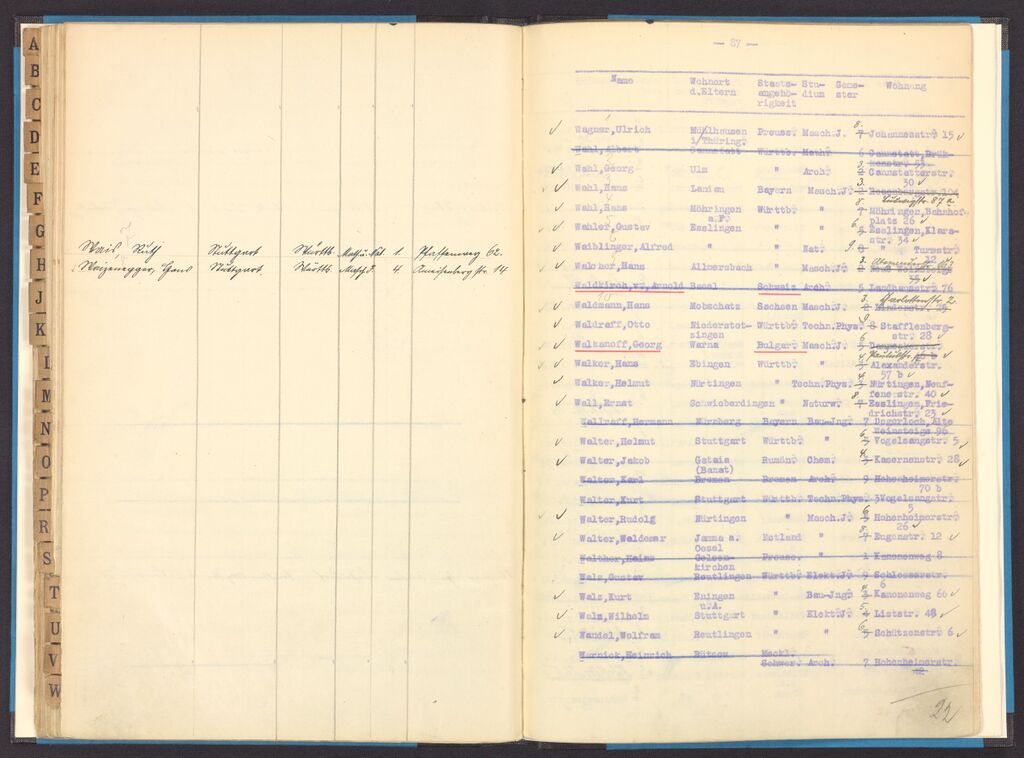 A
B
C
D
E
F
G
H
J
K
L
M
N
O
P
R
S
T
U
V
W
Ruth Stuttgart Württb. Math.u.Nat. 1. Pfaffenweg 62.
Hans Stuttgart Württb. Masch.J. 4 Ameisenbergstr. 14
— 87 —
Name Wohnort d.Eltern Staats-angehö-rigkeit Stu-dium Seme-ster Wohnung
Wagner,Ulrich Mühlhausen Preuss. Masch.J. 8. 7 Johannesstr. 15
i/Thüring.
Wahl,Albert Cannstatt Württb. Math. 6 Cannstatt,Brük-
kenstr. 53
Wahl,Georg Ulm " Arch. 3. 2 Cannstatterstr.
30
Wahl,Hans Landau Bayern Masch.J. 3. 2 Rosenbergstr.104
Ludwigstr. 87a
Wahl,Hans Möhringen Württb. " 8. 7 Möhringen,Bahnhof-
a.F. platz 26
Wahler,Gustav Esslingen " " 6. 5 Esslingen,Klara-
str. 34
Waiblinger,Alfred " " Nat. 9. 8 " Turmstr.
22
Walcher,Hans Allmersbach " Masch.J. 3. 2
Waldkirch,v.,Arnold Basel Schweiz Arch. 5 Landhausstr. 76
Waldmann,Hans Mobschatz Sachsen Masch.J. 3. 2 Lindenstr. 25
Charlottenstr. 2.
Waldraff,Otto Niederstot- Württb. Techn.Phys. 9 8 Stafflenberg-
zingen str. 28
Walkanoff,Georg Warna Bulgar. Masch.J. 6 5
Walker,Hans Ebingen Württb. " 4 3 Alexanderstr.
57 b
Walker,Helmut Nürtingen " Techn.Phys. 4 3 Nürtingen,Neuf-
fenerstr. 40
Wall,Ernst Schwieberdingen " Naturw. 8 7 Esslingen,Frie-
drichstr. 23
Wallraff,Hermann Nürnberg Bayern Bau-Ing. 7 Degerloch,Alte
Weinsteige 96
Walter,Helmut Stuttgart Württb. " 6 5 Vogelsangstr. 5
Walter,Jakob Gataia Rumän. Chem. 4. 3 Kasernenstr. 28
(Banat)
Walter,Karl Bremen Bremen Arch. 9 Hohenheimerstr.
70 b
Walter,Kurt Stuttgart Württb. Techn.Phys. 3 Vogelsangstr.
5
Walter,Rudolf Nürtingen " Masch.J. 6 5 Hohenheimerstr.
26
Walter,Waldemar Jamma a. Estland " 8 7 Eugenstr. 12
Oesel
Walther,Heinz Gelsen- Preuss. " 1 Kanonenweg 8
kirchen
Walz,Gustav Reutlingen Württb. Elekt.J. 9 Schlosserstr.
6
Walz,Kurt Eningen " Bau-Jng. 4 3 Kanonenweg 66
u.A.
Walz,Wilhelm Stuttgart " Elekt.J. 5. 4 Liststr. 48
Wandel,Wolfram Reutlingen " " 6 5 Schützenstr. 6
Warnick,Heinrich Bützow Meckl.
Schwer. Arch. 7 Hohenheimerstr.
22